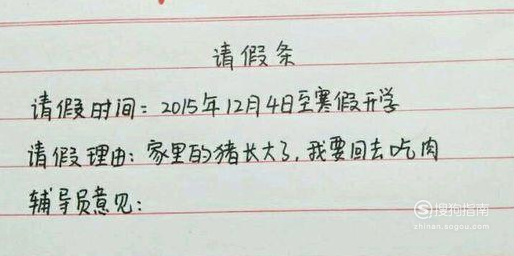 请假条
请假时间：2015年12月4日至寒假开学
请假理由：家里的猪长大了，我要回去吃肉
辅导员意见：
搜狗指南
zhinan.sogou.com